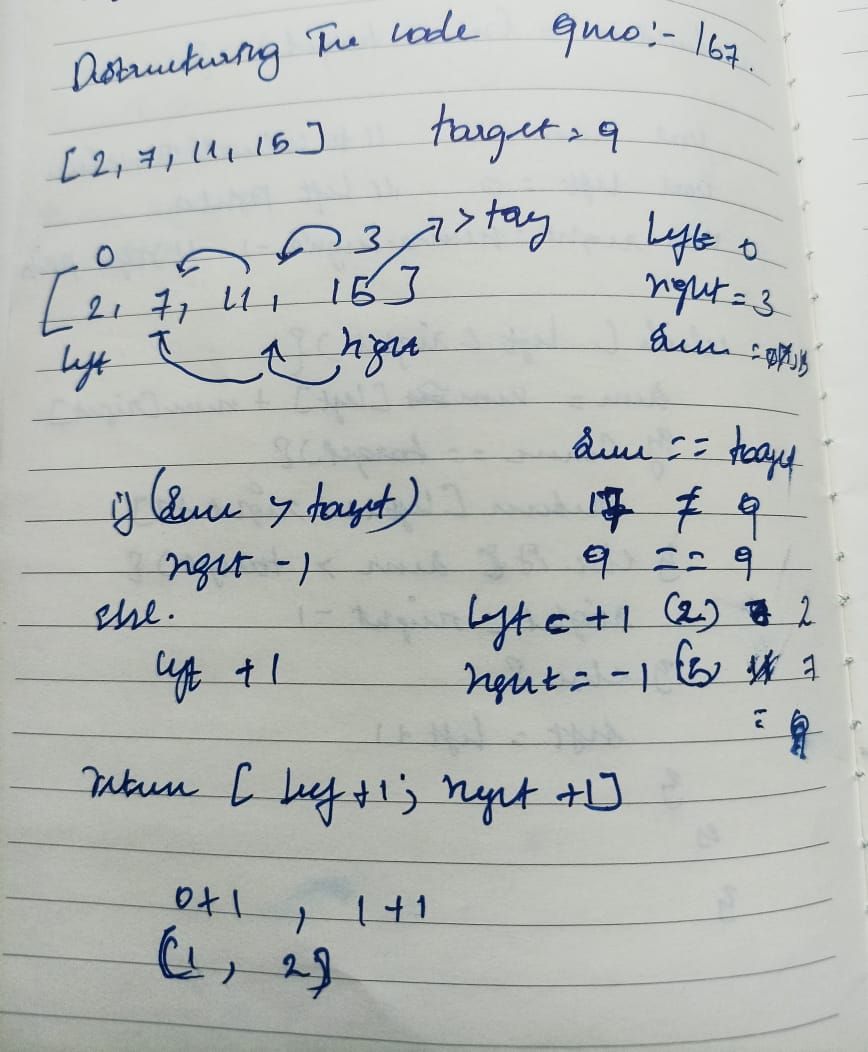 Distructuring The code qno:- 167.
[2, 7, 11, 15] target = 9
0 3 > targ left = 0
[2, 7, 11, 15] right = 3
left right sum =
sum == target
if (sum > target) 17 ≠ 9
right -1 9 == 9
else. left = +1 (2) 2
left +1 right = -1 7
= 9
return [left +1; right +1]
0+1 , 1+1
[1, 2]